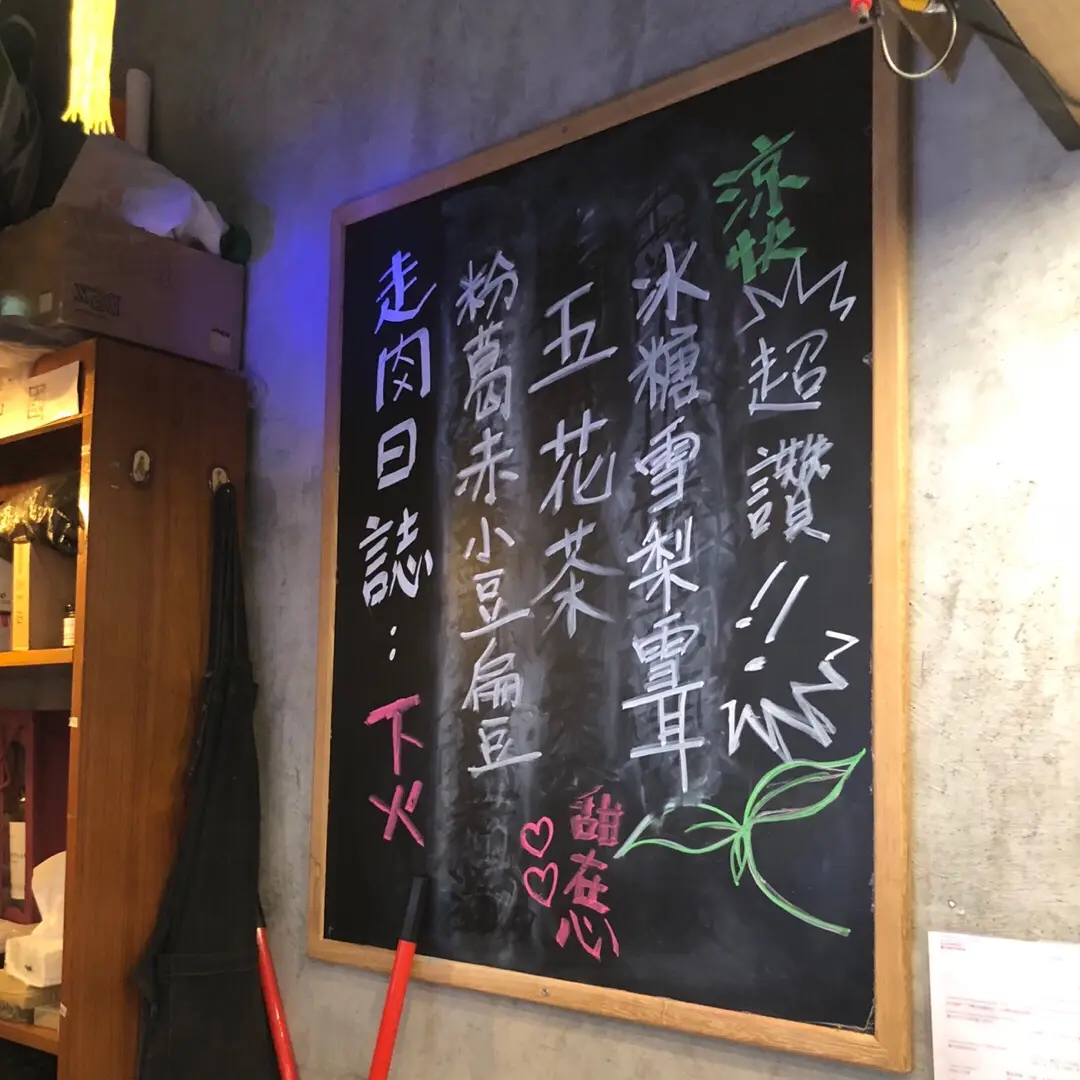 涼快
超讚!!
冰糖雪梨雪耳
五花茶
甜在心
粉葛赤小豆扁豆
走肉日誌：下火